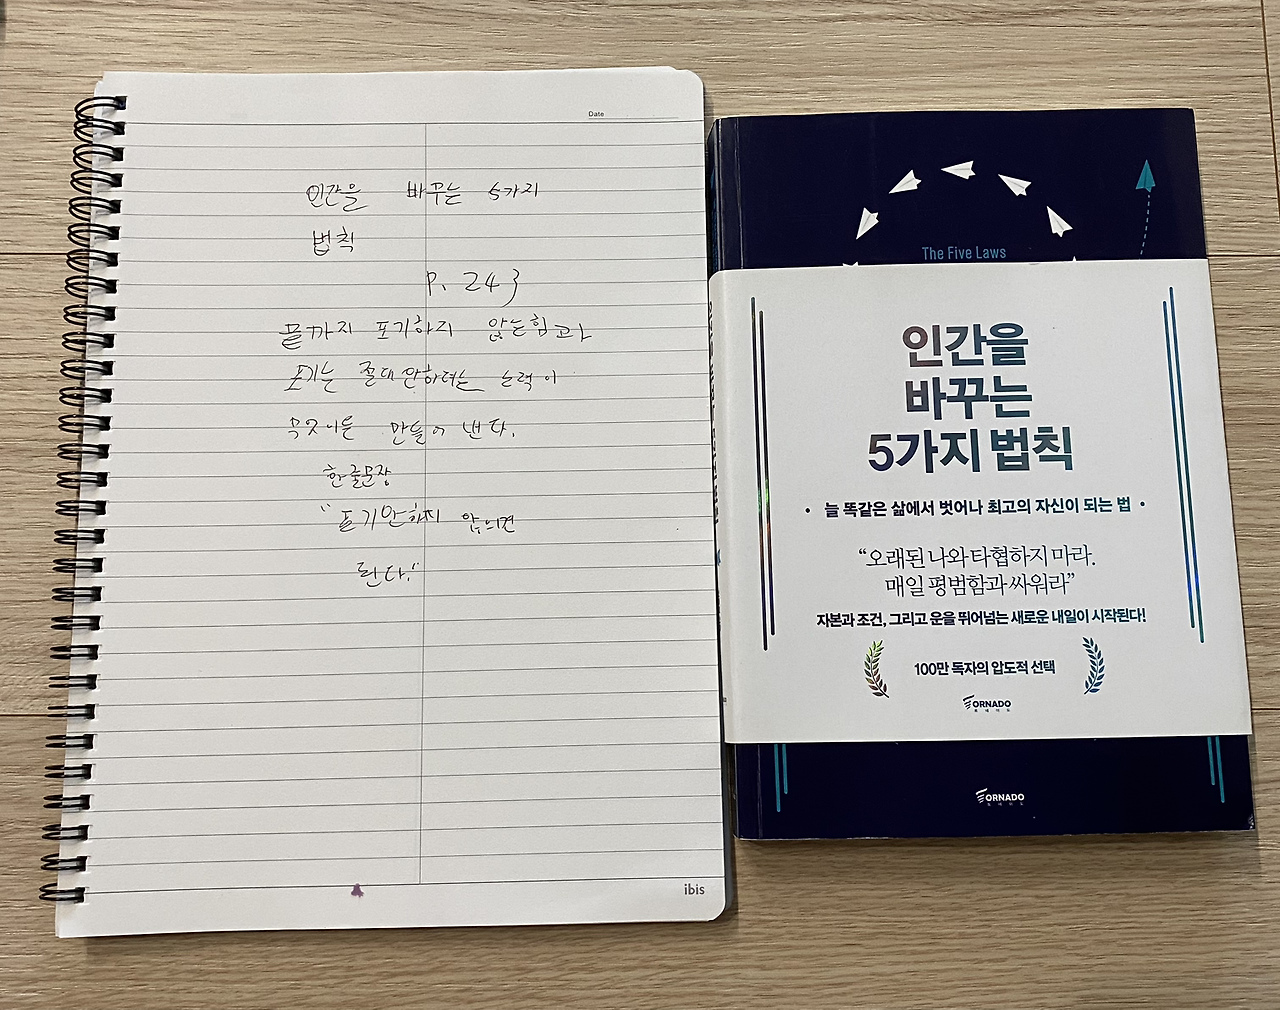 Date
인간을 바꾸는 5가지
법칙
P. 243
끝까지 포기하지 않는힘과
포기는 절대안하려는 노력이
무엇이든 만들어 낸다.
한줄문장
"포기안하지 않으면
된다."
ibis
The Five Laws
인간을
바꾸는
5가지 법칙
• 늘 똑같은 삶에서 벗어나 최고의 자신이 되는 법 •
“오래된 나와 타협하지 마라.
매일 평범함과 싸워라”
자본과 조건, 그리고 운을 뛰어넘는 새로운 내일이 시작된다!
100만 독자의 압도적 선택
TORNADO
토네이도
TORNADO
토네이도